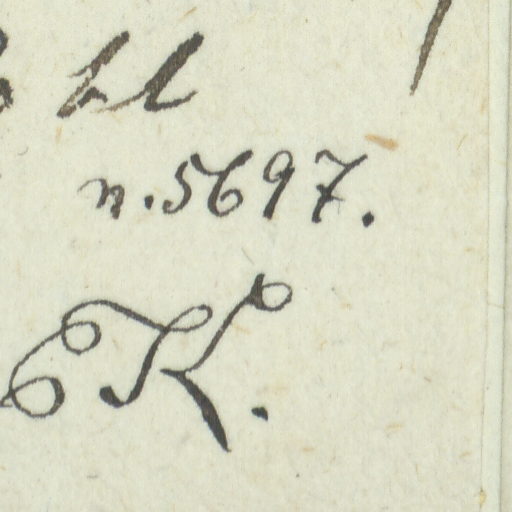 n. 5697.
K.